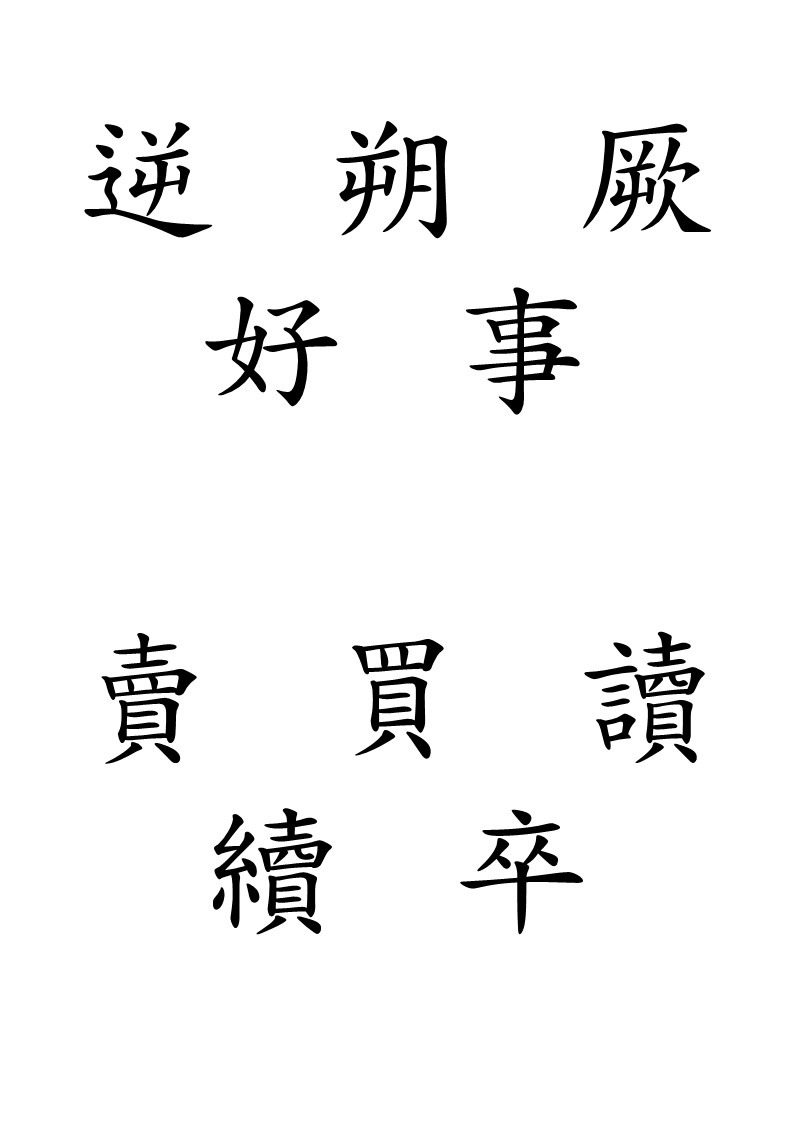 逆 朔 厥
好 事
賣 買 讀
續 卒